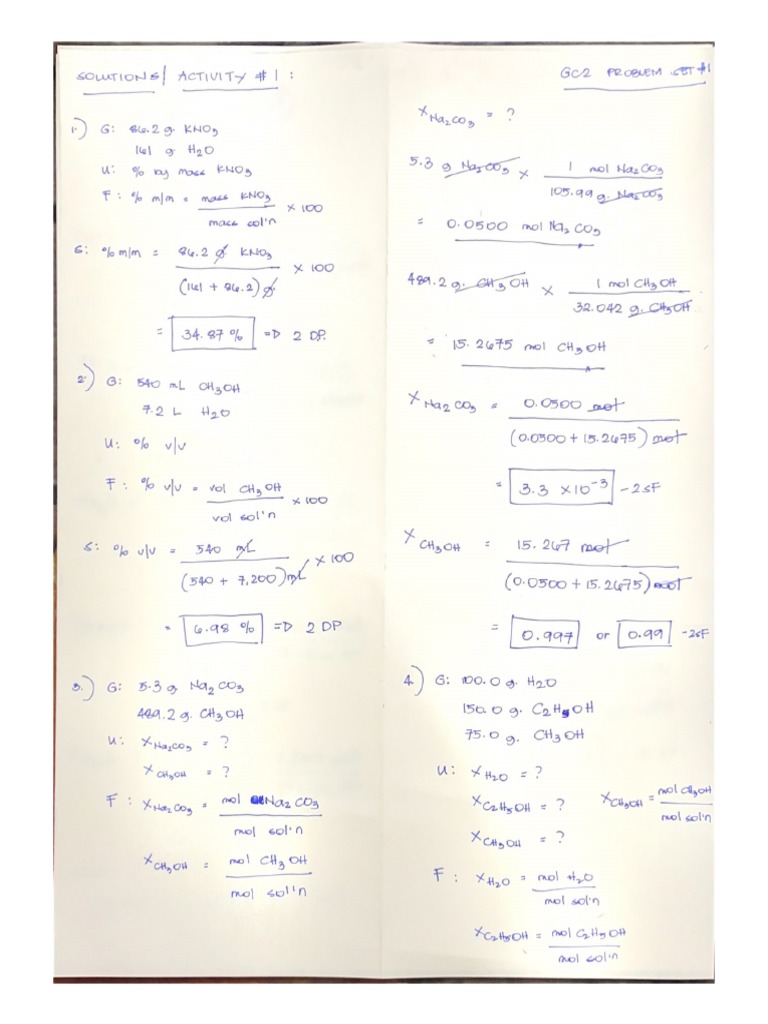 SOLUTIONS/ ACTIVITY #1:
1.) G: 86.2 g. KNO3
161 g H2O
U: % by mass KNO3
F: % m/m = mass KNO3 / mass sol'n × 100
S: % m/m = 86.2 g KNO3 / (161 + 86.2) g × 100
= 34.87 % => 2 DP.
2.) G: 540 mL CH3OH
7.2 L H2O
U: % v/v
F: % v/v = vol CH3OH / vol sol'n × 100
S: % v/v = 540 mL / (540 + 7,200) mL × 100
= 6.98 % => 2 DP
3.) G: 5.3 g. Na2CO3
489.2 g. CH3OH
U: XNa2CO3 = ?
XCH3OH = ?
F: XNa2CO3 = mol Na2CO3 / mol sol'n
XCH3OH = mol CH3OH / mol sol'n
GC2 PROBLEM SET #1
XNa2CO3 = ?
5.3 g Na2CO3 × 1 mol Na2CO3 / 105.99 g. Na2CO3
= 0.0500 mol Na2CO3
489.2 g. CH3OH × 1 mol CH3OH / 32.042 g. CH3OH
= 15.2675 mol CH3OH
XNa2CO3 = 0.0500 mol / (0.0500 + 15.2675) mol
= 3.3 × 10-3 - 2SF
XCH3OH = 15.267 mol / (0.0500 + 15.2675) mol
= 0.997 or 0.99 - 2SF
4.) G: 100.0 g. H2O
150.0 g. C2H5OH
75.0 g. CH3OH
U: XH2O = ?
XC2H5OH = ? XCH3OH = mol CH3OH / mol sol'n
XCH3OH = ?
F: XH2O = mol H2O / mol sol'n
XC2H5OH = mol C2H5OH / mol sol'n